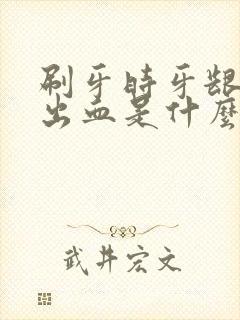 刷牙時牙齦
出血是什麼
武井宏文